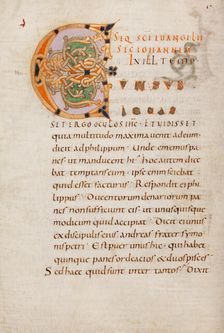 SEQ SCI EUANGELII
SEC IOHANNEM
IN ILL TEMP
CU SUB
LEUAS
SET ERGO OCULOS IHC ET UIDISSET
quia multitudo maxima uenit ad eum dicit
ad philippum. Unde ememus panes
ut manducent hi? hoc autem dice
bat temptans eum. ipse enim sciebat
quid esset facturus. Respondit ei phi
lippus. Ducentorum denariorum panes
non sufficiunt eis. ut unusquisque
modicum quid accipiat. Dicit ei unus
ex discipulis eius andreas frater symo
nis petri. Est puer unus hic. qui habet
quinque panes ordeacios et duos pisces.
Sed haec quid sunt inter tantos? Dixit